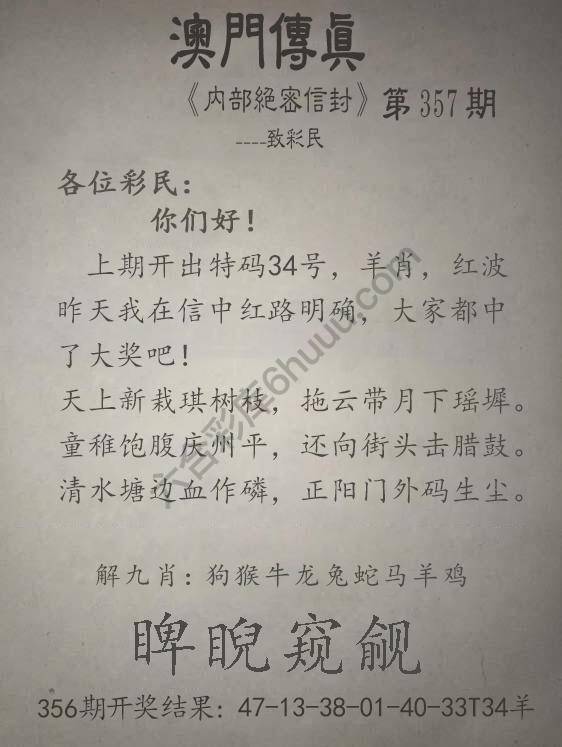 澳門傳眞
《内部絕密信封》第357期
----致彩民
各位彩民：
你们好！
上期开出特码34号，羊肖，红波
昨天我在信中红路明确，大家都中
了大奖吧！
天上新栽琪树枝，拖云带月下瑶墀。
童稚饱腹庆州平，还向街头击腊鼓。
清水塘边血作磷，正阳门外码生尘。
解九肖：狗猴牛龙兔蛇马羊鸡
睥睨窥觎
356期开奖结果：47-13-38-01-40-33T34羊
六合彩库6huuu.com